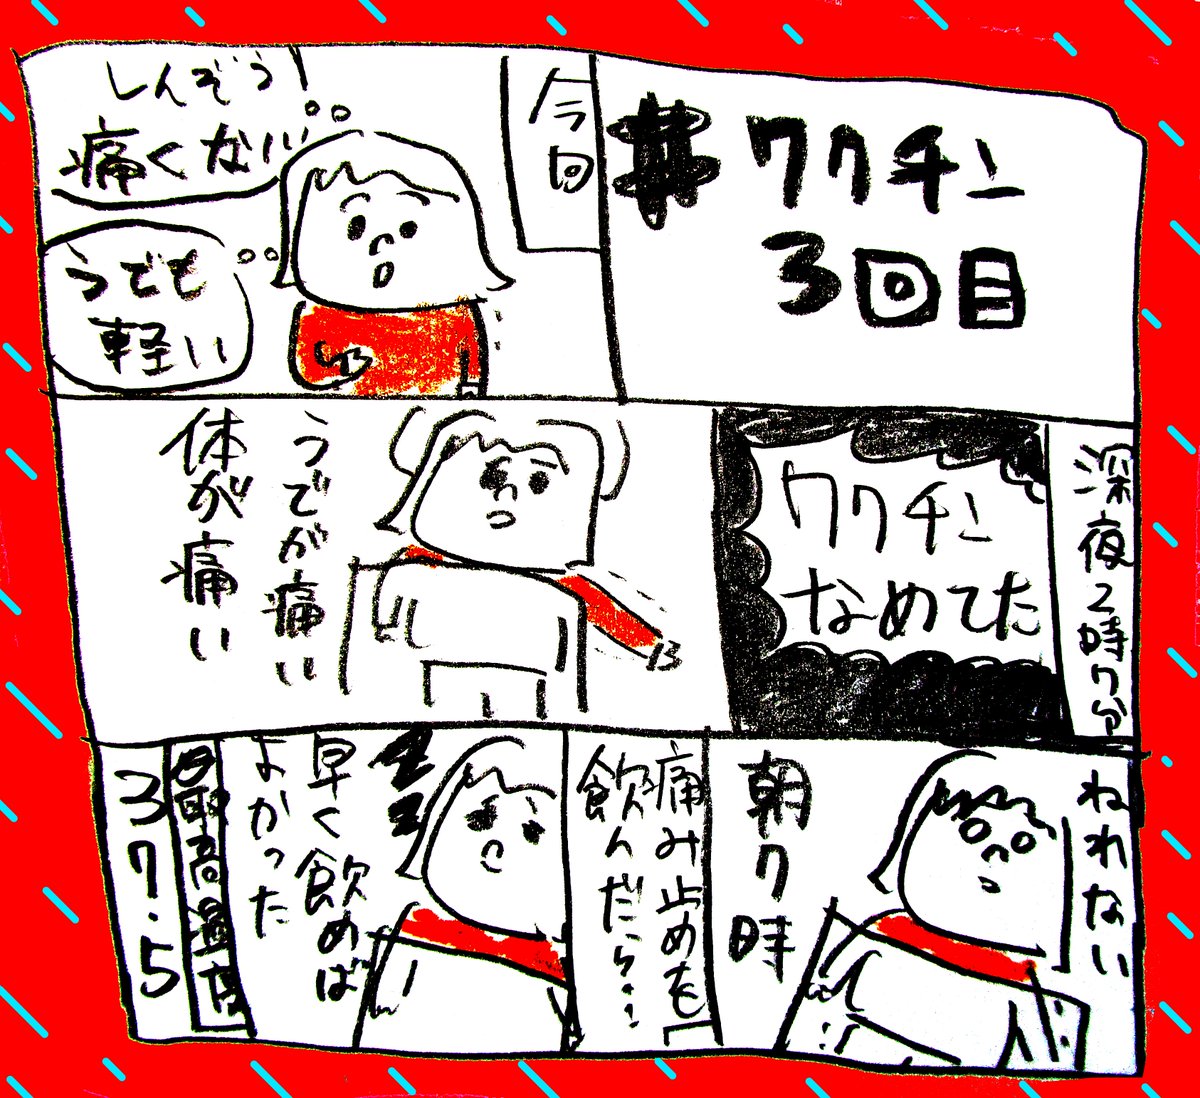 #ワクチン
3回目
今回
しんぞう!
痛くない
うでも
軽い
深夜2時7分
ワクチン
なめてた
うでが痛い
体が痛い
ねれない
朝7時
痛み止めを
飲んだら…
早く飲めば
よかった
最高温度
37.5